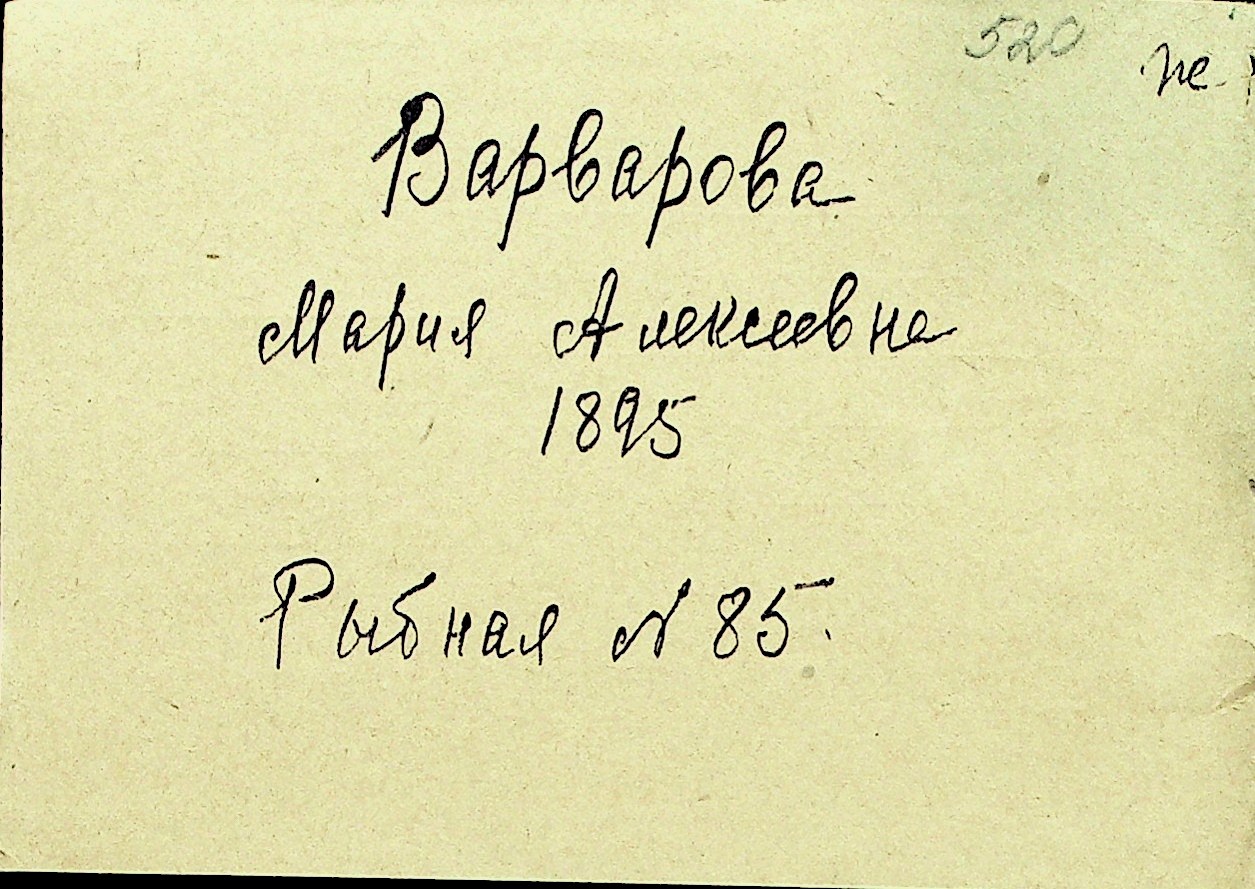 520
Варварова
Мария Алексеевна
1895
Рыбная N 85.